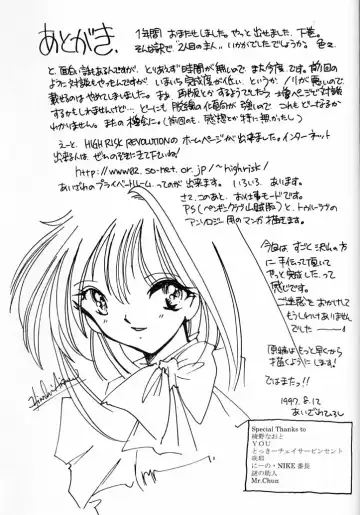 あとがき。
1年間 おまたせしました。やっと出ました、下巻。
そんな訳で"2人目のまん"、いかがでしたでしょうか。色々
と、面白い話もあるんですが、とりあえず時間が無いので また今度です。前回の
ように対談もやったんですが、いまいち完成度が低い、というか ノリが無いので
載せるのはやめてしまいました。
わかりません。またの機会に。
えーと、HIGH RISK REVOLUTIONの ホームページが出来ました。インターネット
出来る人は、ぜひのぞきに来て下さいね!
http://www02.so-net.or.jp/~highrisk/
あいざわのプライベートルーム。ってのが 出来ます。いろいろ、あります。
さて、このあと、お仕事モードです。
PS(ペンギンクラブ山賊版)と、トゥルーラブの
アンソロジー用のマンガ描きます。
今回は、すごく沢山の方
に手伝って頂いて
やっと完成した。って
感じです。
ご迷惑をおかけして
もうしわけありません
でした ーー!
原稿はもっと早くから
描くようにします!
ではまたっ!!
1997. 8. 12
あいざわひろし
Special Thanks to
綾野なおと
YOU
とっきーチェイサービンセント
咲昭
にーの・NIKE 番長
謎の助人
Mr.Chun